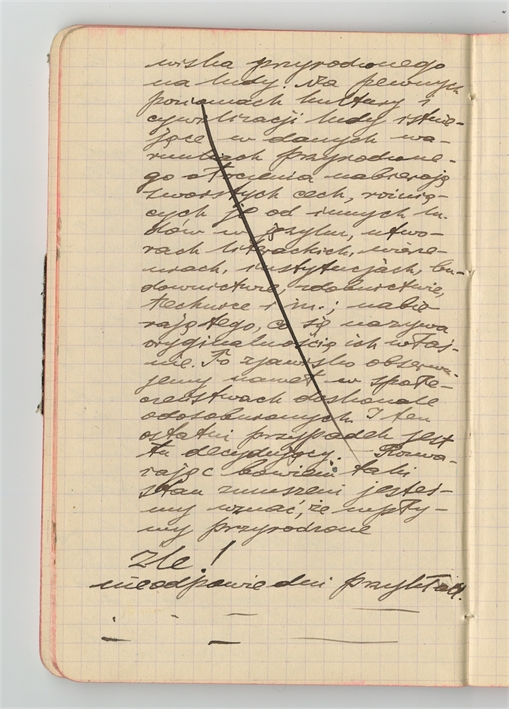 wiska przyrodzonego
na ludy. Na pewnych
poziomach kultury i
cywilizacji ludy istnie-
jące w danych wa-
runkach przyrodzone-
go otoczenia nabierają
swoistych cech, różnią-
cych je od innych lu-
dów w języku, utwo-
rach literackich, wierze-
niach, instytucjach, bu-
downictwie, zdobnictwie,
technice i in.; nabie
rają tego, co się nazywa
oryginalnością ich właś-
nie. To zjawisko obserwu-
jemy nawet w społe-
czeństwach doskonale
odosobnionych. I ten
ostatni przypadek jest
tu decydujący. Rozwa-
żając bowiem taki
stan zmuszeni jesteś-
my uznać, że wpły-
wy przyrodzone
Źle!
nieodpowiedni przykład.